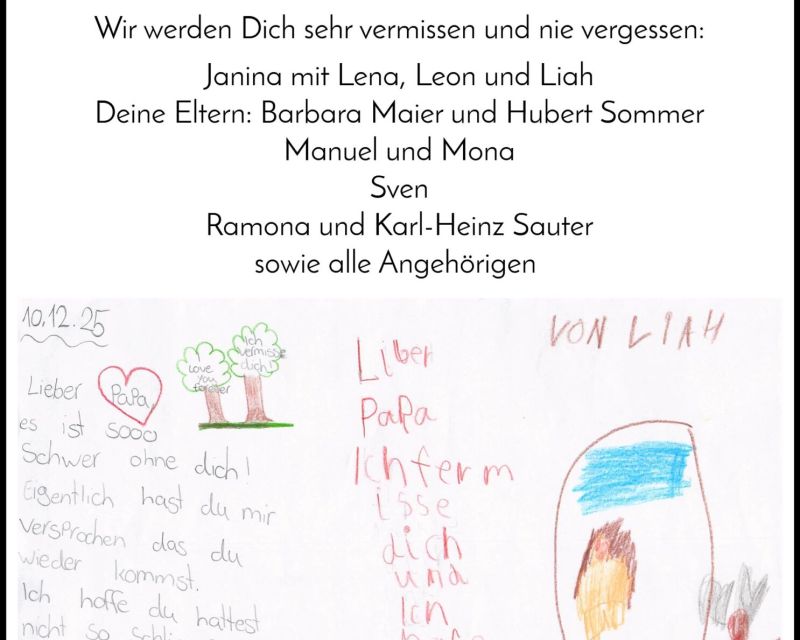 Wir werden Dich sehr vermissen und nie vergessen:
Janina mit Lena, Leon und Liah
Deine Eltern: Barbara Maier und Hubert Sommer
Manuel und Mona
Sven
Ramona und Karl-Heinz Sauter
sowie alle Angehörigen
10.12.25
Lieber Papa,
es ist sooo
Schwer ohne dich!
Eigentlich hast du mir
versprochen das du
wieder kommst.
Ich hoffe du hattest
nicht so
Love
you
forever
Ich
vermisse
dich!
Liber
PaPa
Ich ferm
isse
dich
und
Ich
VON LIAH